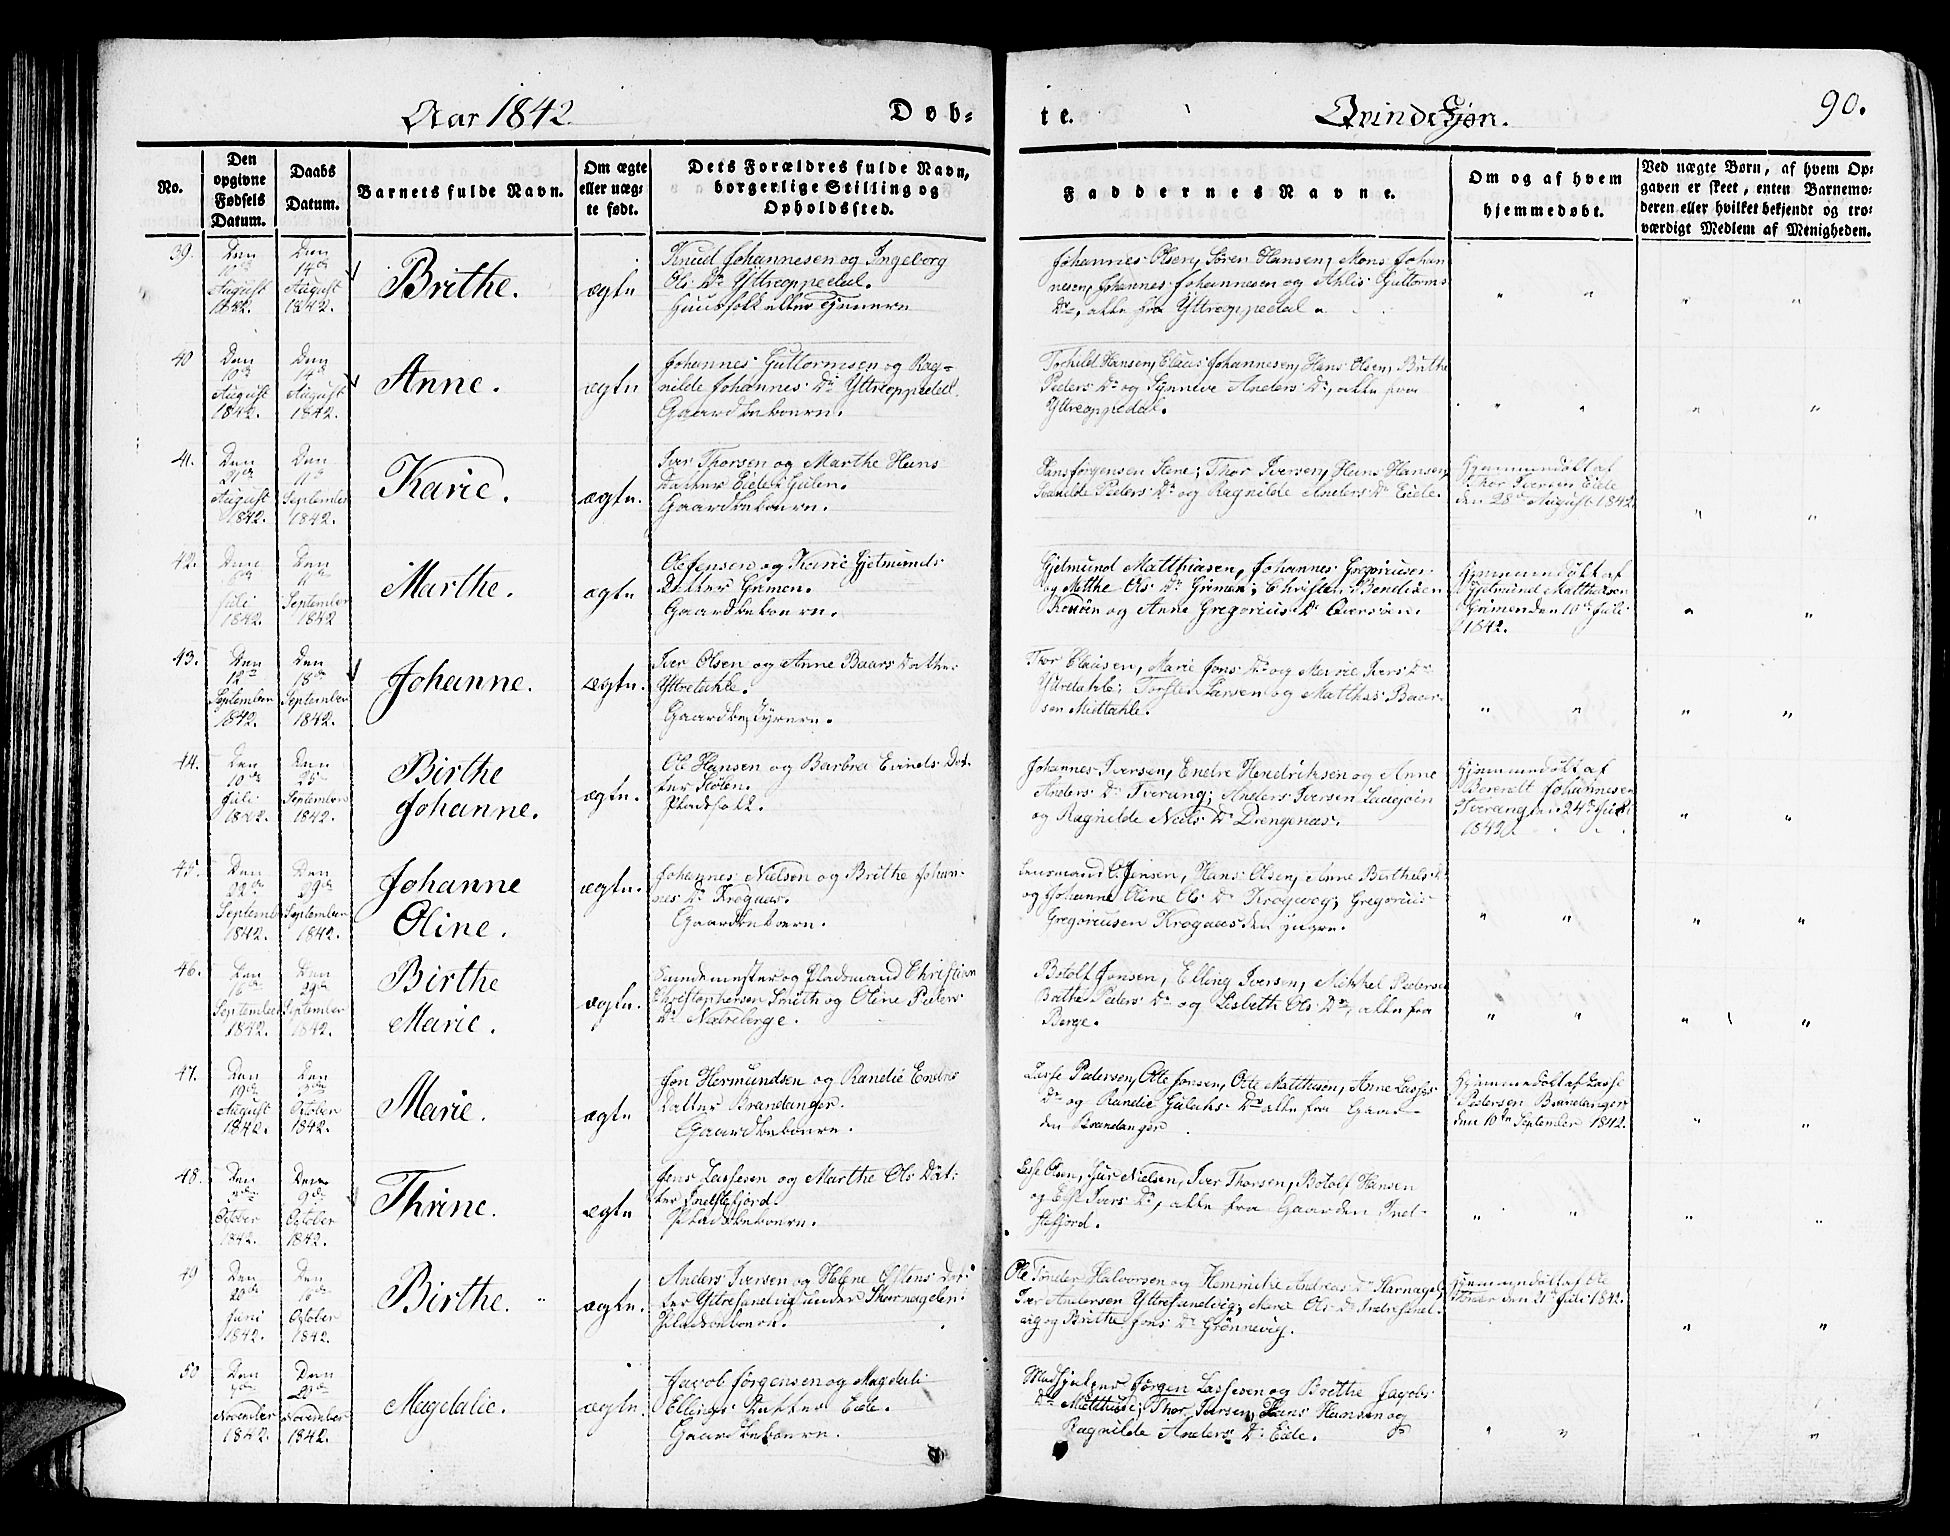 Aar 1842.
Døb-
te.
Qvindekjøn.
90.
No.
Den
opgivne
Fødsels
Datum.
Daabs
Datum.
Barnets fulde Navn.
Om ægte
eller uæg-
te født.
Dets Forældres fulde Navn,
borgerlige Stilling og
Opholdssted.
Faddernes Navne.
Om og af hvem
hjemmedøbt.
Ved uægte Børn, af hvem Op-
gaven er skeet, enten Barnemo-
deren eller hvilket bekjendt og tro-
værdigt Medlem af Menigheden.
39.
Den
August
1842.
Den
14de
August
1842.
Brithe.
ægte
Knud Johannesen og Ingeborg
Ols Dr Yttreoppedal.
Johannes Olsen, Søren Hansen, Mons Johan-
nesen, Johannes Johannesen og Ahlis Guttorms
Dr, alle fra Yttreoppedal.
40
Den
10de
August
1842.
Den
14de
August
1842.
Anne.
ægte
Johannes Guttormsen og Rag-
nilde Johannes Dr Yttreoppedal.
Gaardbeboere.
Torkild Hansen, Claus Johannesen, Hans Olsen, Brithe
Peders Dr og Synneve Anders Dr, alle fra
Yttreoppedal.
41.
Den
21de
August
1842.
Den
11te
September
1842.
Karie.
ægte.
Iver Thorsen og Marthe Hans
Datter Eide i Gulen.
Gaardbeboere.
Hans Jørgensen Stene; Thor Iversen, Hans Hansen,
Ragnilde Anders Dr Eide.
Hjemmedøbt af
Thor Iversen Eide
den 28de August 1842.
42.
Den
Juli
1842.
Den
11te
September
1842
Marthe.
ægte
Ole Jensen og Karie Gjelmunds
Datter Grimen.
Gaardbeboere.
Gjelmund Matthiasen, Johannes Gregoriusen
og Mitthe Ols Dr Grimen; Christen Bendixen
og Anne Gregorius Dr
Hjemmedøbt af
Gjelmund Matthiasen
Grimen den 10de Juli
1842.
43.
Den
12te
September
1842.
Den
18de
September
1842.
Johanne.
ægte.
Iver Olsen og Anne Baars Datter
Yttretahle.
Thor Clausen, Marie Jons Dr og Marie Ivers Dr
Ydretahle; Torsten Larsen og Matthias Baar-
sen Midttahle.
44.
Den
10de
Juli
1842.
Den
25de
September
1842.
Birthe
Johanne.
ægte.
Ole Hansen og Barbra Eivinds Dat-
ter
Pladsfolk.
Johannes Iversen, Endre Hendriksen og Anne
Anders Dr Tverang; Anders Iversen
og Ragnilde Niels Dr Dingenæs.
Hjemmedøbt af
Berendt Johannesen
Tverang den 24de Juli
1842.
45.
Den
22de
September
1842.
Den
29de
September
1842.
Johanne
Oline.
ægte.
Johannes Nielsen og Brithe Johan-
nes Dr Krogaas.
Gaardbeboere.
Lensmand O. Jensen, Hans Olsen, Anne
og Johanne Oline Ols Dr Gregorius
Gregoriusen Krogaas den yngre.
46.
Den
16de
September
1842.
Den
29de
September
1842.
Birthe
Marie.
ægte.
og Pladsmand Christian
Christophersen Smith og Oline Peders
Dr
Botolf Jonsen, Elling Iversen, Mikkel Pedersen
Brithe Peders Dr og Lisbeth Ols Dr, alle fra
Berge.
47.
Den
19de
August
1842.
Den
October
1842.
Marie.
ægte
Jon Hermundsen og Randie Endres
Datter Brandanger.
Gaardbeboere.
Lasse Pedersen, Otte Jonsen, Otte Matthisen, Anne Lasses
Dr og Randie Dr alle fra Gaar-
den Brandanger.
Hjemmedøbt af Lasse
Pedersen Brandanger
den 10de September 1842.
48.
Den
October
1842.
Den
9de
October
1842.
Thrine.
ægte
Jens Lassesen og Marthe Ols Dat-
ter Indstefjord.
Pladsbeboere.
Lasse Olsen, Nielsen, Iver Thorsen, Botolf Hansen
og Ivers Dr, alle fra Gaarden Ind-
stefjord.
49
Den
Juni
1842.
Den
October
1842.
Birthe.
ægte.
Anders Iversen og Helene Dat-
ter Yttresandvig under
Pladsbeboere.
Ole Tønder Halvorsen og Hemmeke Andreas Dr
Iver Andersen Yttresandvig; Ols Dr Indresand-
vig og Brithe Jons Dr Grønnevig.
Hjemmedøbt af Ole
Tønder den 21de Juli 1842.
50
Den
November
1842.
Den
November
1842.
Magdalie.
ægte.
Jacob Jørgensen og Magdali
Ellings Datter Eide.
Gaardbeboere.
Medhjelper Jørgen Lassesen og Brithe Jacobs
Dr Thor Iversen, Hans Hansen og
Ragnilde Anders Dr Eide.